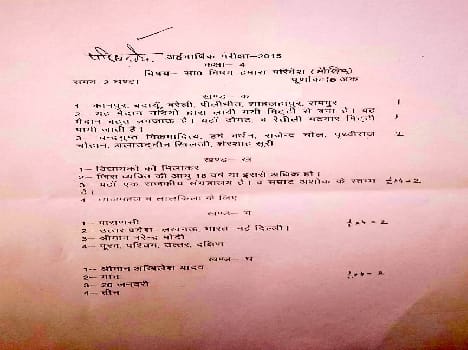 अर्द्धवार्षिक परीक्षा–2015
कक्षा– 4
समय 2 घण्टा विषय– सा0 विषय हमारा परिवेश (मौखिक) पूर्णांक
खण्ड – क
1– कानपुर, बदायूँ, बरेली, पीलीभीत, शाहजहांपुर, रामपुर 1
2– यह मैदान नदियों द्वारा लायी गयी मिट्टी से बना है। यह
मैदान बहुत उपजाऊ है। यहाँ दोमट, व रेतीली मिट्टी
पायी जाती है। 1
3– चन्द्रगुप्त विक्रमादित्य, हर्ष वर्धन, राजेन्द्र चोल, पृथ्वीराज 2
चौहान, अलाउद्दीन खिलजी, शेरशाह सूरी
खण्ड – ख
1– विधायकों को मिलाकर
2– जिस व्यक्ति की आयु 18 वर्ष या इससे अधिक हो।
3– यहाँ एक राजकीय संग्रहालय है। व सम्राट अशोक के स्तम्भ
है।
4– ताजमहल व लालकिला के लिए
खण्ड – ग
1– वाराणसी
2– उत्तर प्रदेश लखनऊ, भारत नई दिल्ली।
3– श्रीमान नरेन्द्र मोदी
4– पूरब, पश्चिम, उत्तर, दक्षिण
खण्ड – घ
1– श्रीमान अखिलेश यादव
2–
3– 26 जनवरी
4– तीन